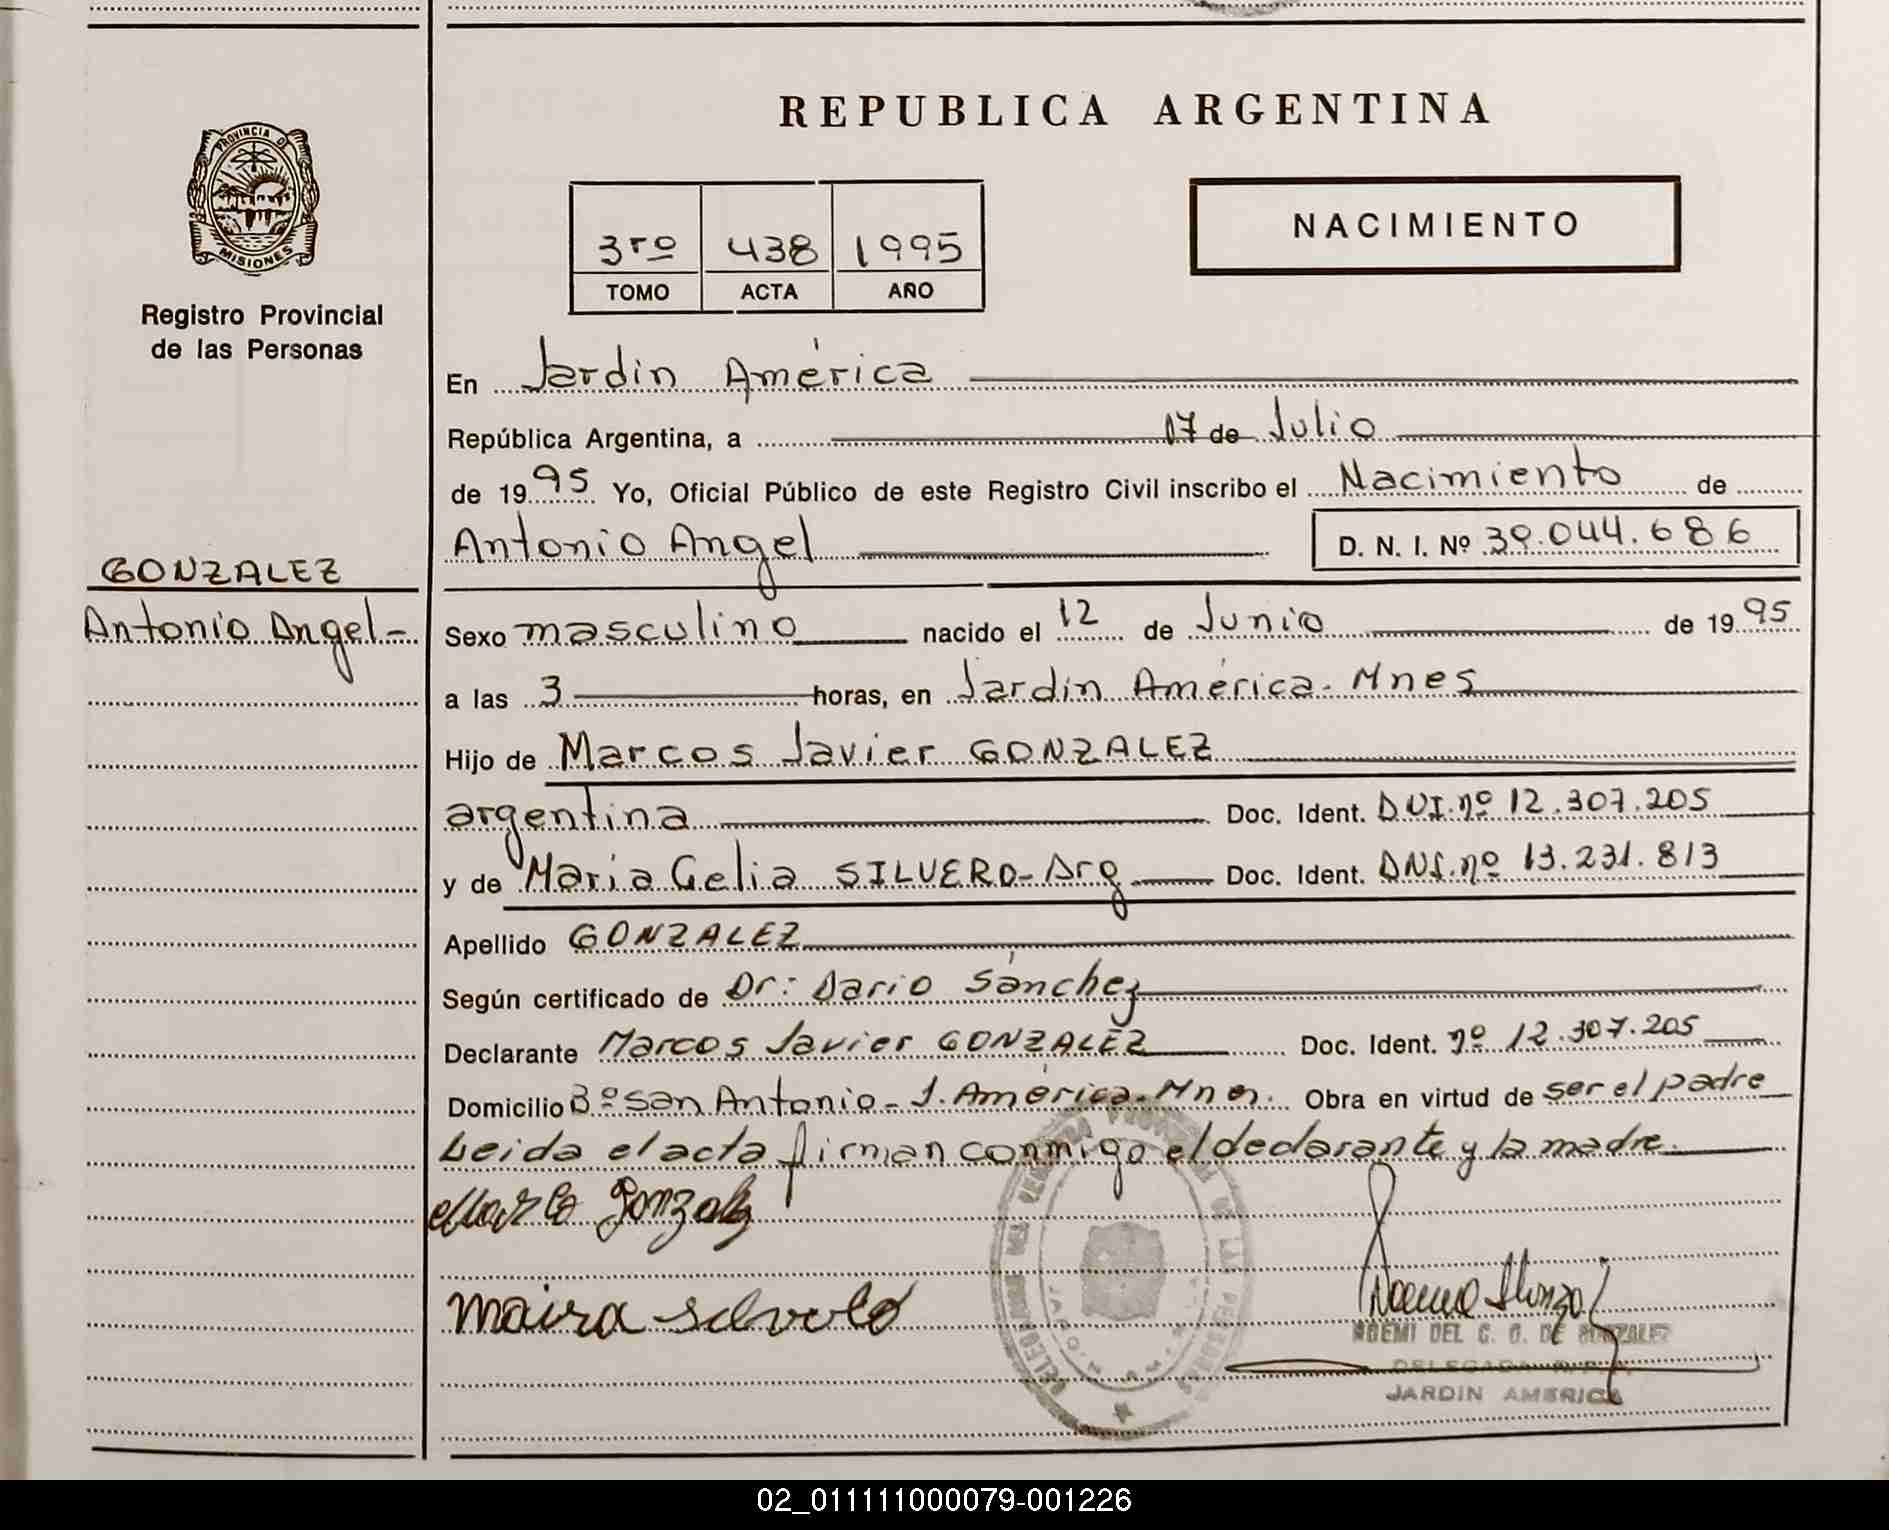 PROVINCIA DE
MISIONES
Registro Provincial
de las Personas
GONZALEZ
Antonio Angel-
REPUBLICA ARGENTINA
3ro 438 1995
TOMO ACTA AÑO
NACIMIENTO
En Jardin América
República Argentina, a 17 de Julio
de 1995 Yo, Oficial Público de este Registro Civil inscribo el Nacimiento de
Antonio Angel D. N. I. Nº 39.044.686
Sexo masculino nacido el 12 de Junio de 1995
a las 3 horas, en Jardín América. Mnes
Hijo de Marcos Javier GONZALEZ
argentina Doc. Ident. DUI.nº 12.307.205
y de Maria Celia SILVERO-Arg Doc. Ident. DNI.nº 13.231.813
Apellido GONZALEZ
Según certificado de Dr: Dario Sánchez
Declarante Marcos Javier GONZALEZ Doc. Ident. nº 12.307.205
Domicilio Bº San Antonio- J. América. Mnes. Obra en virtud de ser el padre
Leida el acta firman conmigo el declarante y la madre.
NOEMI DEL C. O. DE GONZALEZ
DELEGADA R.P.P.
JARDIN AMERICA
02_011111000079-001226